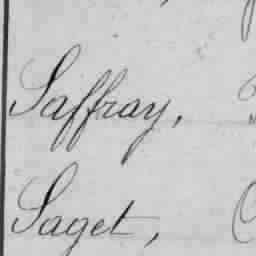 Saffray,
Saget,